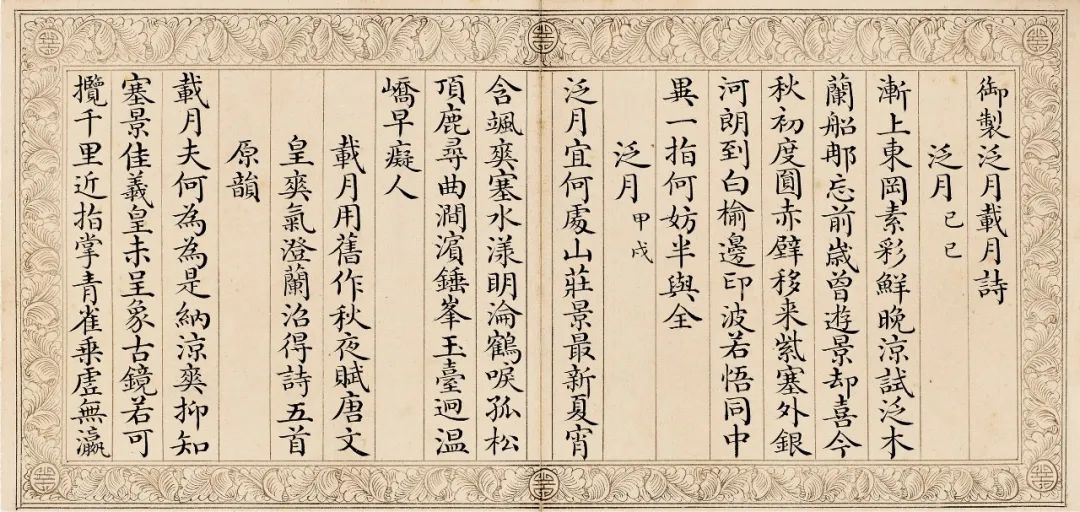 御製泛月載月詩
泛月己巳
漸上東岡素彩鮮晚涼試泛木
蘭船那忘前歲曾遊景却喜今
秋初度圓赤壁移来紫塞外銀
河朗到白榆邊印波若悟同中
異一指何妨半與全
泛月甲戌
泛月宜何處山莊景最新夏宵
含颯爽塞水漾明淪鶴唳孤松
頂鹿尋曲澗濵錘峯玉臺迥溫
嶠早癡人
載月用舊作秋夜賦唐文
皇爽氣澄蘭沼得詩五首
原韻
載月夫何為為是納涼爽抑知
塞景佳羲皇未呈象古鏡若可
攬千里近指掌青雀乗虛無瀛